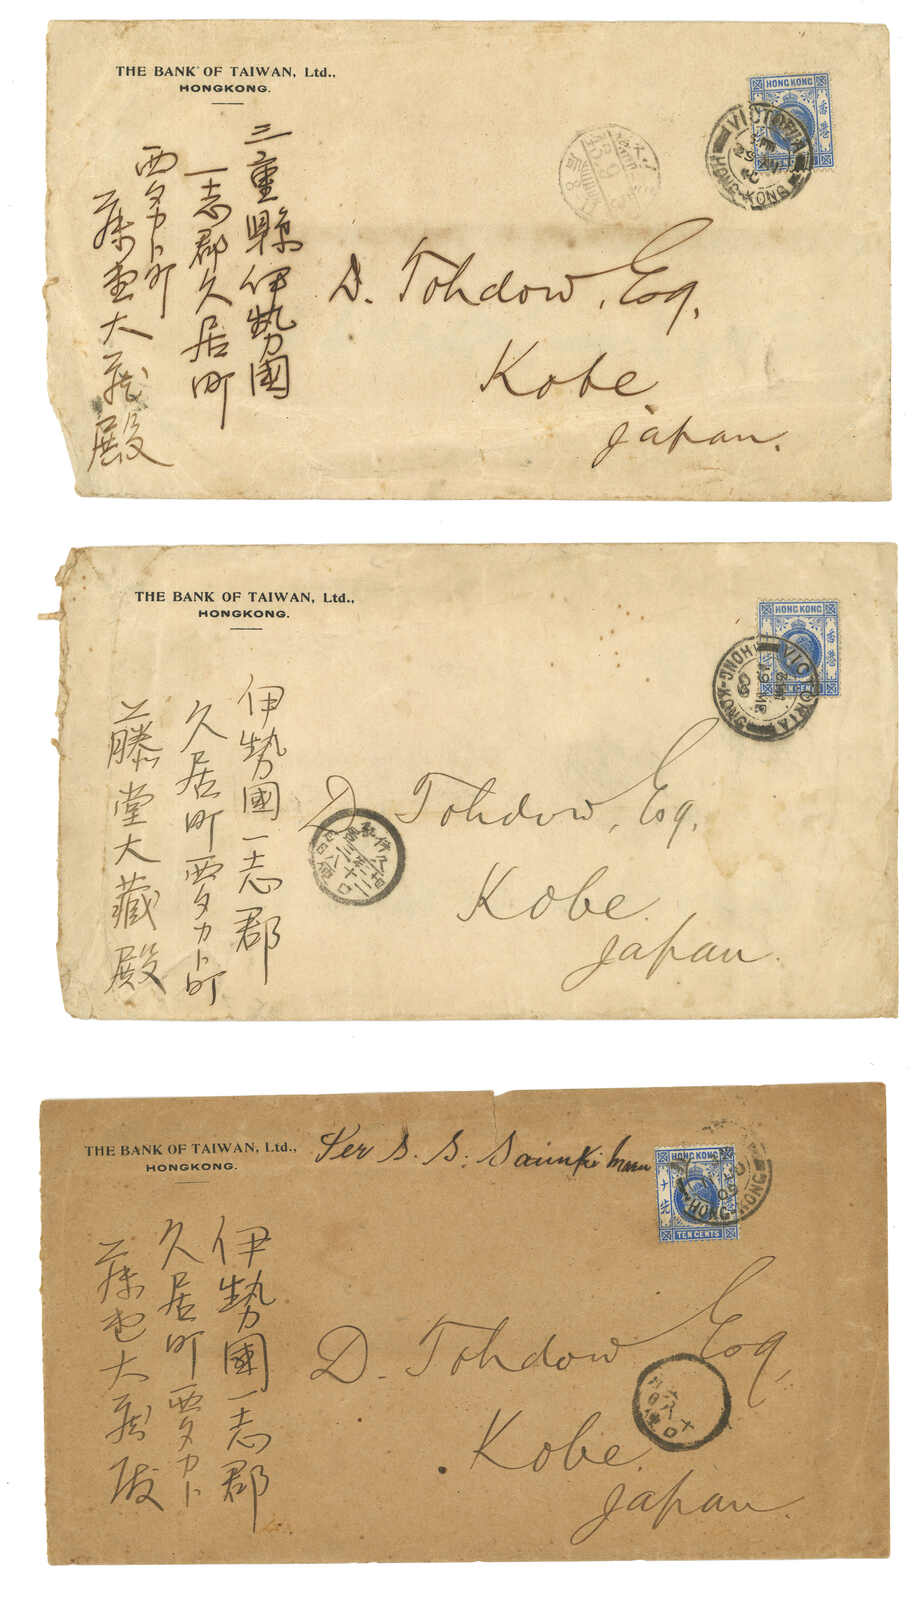 THE BANK OF TAIWAN, Ltd.,
HONGKONG.
HONG KONG
香港
VICTORIA
HONG-KONG
三重縣伊勢國
一志郡久居町
西タカト町
藤堂大蔵殿
D. Tohdow, Esq,
Kobe
Japan.
THE BANK OF TAIWAN, Ltd.,
HONGKONG.
HONG KONG
香港
TEN CENTS
VICTORIA
HONG-KONG
09
伊勢國一志郡
久居町西タカト町
藤堂大藏殿
D. Tohdow, Esq,
Kobe.
Japan.
THE BANK OF TAIWAN, Ltd.,
HONGKONG.
Per S. S. Sainki Maru
HONG KONG
TEN CENTS
HONG-KONG
09
伊勢國一志郡
久居町西タカト
藤堂大蔵殿
D. Tohdow Esq,
Kobe.
Japan.